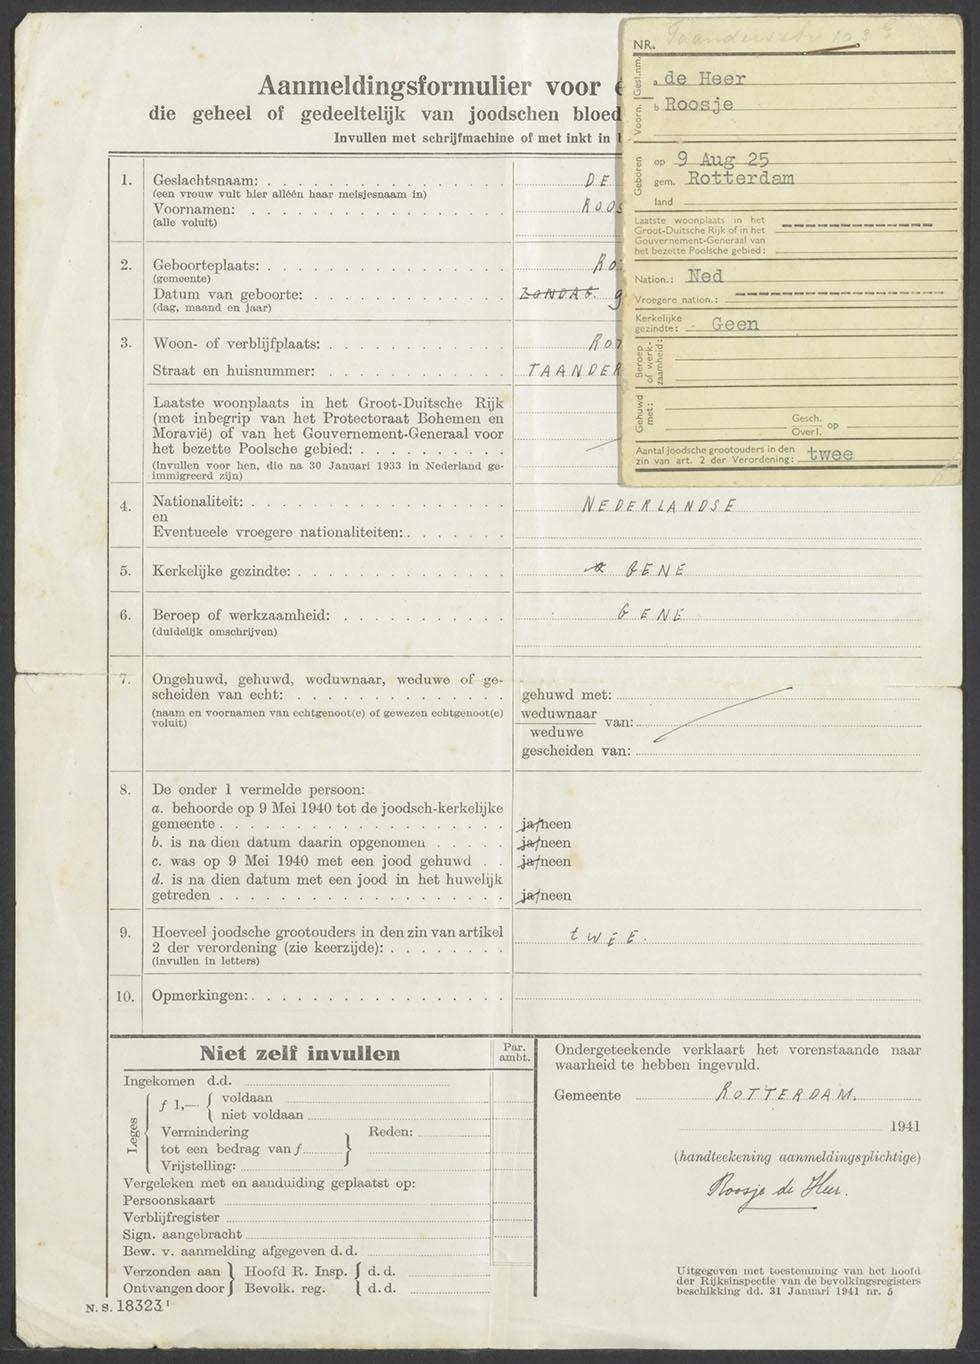 Aanmeldingsformulier voor
die geheel of gedeeltelijk van joodschen bloed
Invullen met schrijfmachine of met inkt in
1. Geslachtsnaam: DE
(een vrouw vult hier alléén haar meisjesnaam in)
Voornamen: ROOS
(alle voluit)
2. Geboorteplaats: Ro
(gemeente)
Datum van geboorte: ZONDAG. 9
(dag, maand en jaar)
3. Woon- of verblijfplaats: ROT
Straat en huisnummer: TAANDER
Laatste woonplaats in het Groot-Duitsche Rijk
(met inbegrip van het Protectoraat Bohemen en
Moravië) of van het Gouvernement-Generaal voor
het bezette Poolsche gebied:
(Invullen voor hen, die na 30 Januari 1933 in Nederland ge-
immigreerd zijn)
4. Nationaliteit: NEDERLANDSE
en
Eventueele vroegere nationaliteiten:
5. Kerkelijke gezindte: GENE
6. Beroep of werkzaamheid: GENE
(duidelijk omschrijven)
7. Ongehuwd, gehuwd, weduwnaar, weduwe of ge-
scheiden van echt:
(naam en voornamen van echtgenoot(e) of gewezen echtgenoot(e)
voluit)
gehuwd met:
weduwnaar
weduwe
van:
gescheiden van:
8. De onder 1 vermelde persoon:
a. behoorde op 9 Mei 1940 tot de joodsch-kerkelijke
gemeente ja/neen
b. is na dien datum daarin opgenomen ja/neen
c. was op 9 Mei 1940 met een jood gehuwd ja/neen
d. is na dien datum met een jood in het huwelijk
getreden ja/neen
9. Hoeveel joodsche grootouders in den zin van artikel
2 der verordening (zie keerzijde): tWEE.
(invullen in letters)
10. Opmerkingen:
Niet zelf invullen
Par.
ambt.
Ingekomen d.d.
Leges
f 1,— { voldaan
niet voldaan
Vermindering
tot een bedrag van f
Vrijstelling:
Reden:
Vergeleken met en aanduiding geplaatst op:
Persoonskaart
Verblijfregister
Sign. aangebracht
Bew. v. aanmelding afgegeven d.d.
Verzonden aan } Hoofd R. Insp. { d.d.
Ontvangen door } Bevolk. reg. { d.d.
N. S. 18323¹
Ondergeteekende verklaart het vorenstaande naar
waarheid te hebben ingevuld.
Gemeente ROTTERDAM.
1941
(handteekening aanmeldingsplichtige)
Roosje de Heer.
Uitgegeven met toestemming van het hoofd
der Rijksinspectie van de bevolkingsregisters
beschikking dd. 31 Januari 1941 nr. 5
NR. 103
Gesl.nm. a de Heer
Voorn. b Roosje
Geboren op 9 Aug 25
gem. Rotterdam
land
Laatste woonplaats in het
Groot-Duitsche Rijk of in het
Gouvernement-Generaal van
het bezette Poolsche gebied:
Nation.: Ned
Vroegere nation.:
Kerkelijke
gezindte: Geen
Beroep
of werk-
zaamheid:
Gehuwd
met:
Gesch.
Overl.
op
Aantal joodsche grootouders in den
zin van art. 2 der Verordening: twee